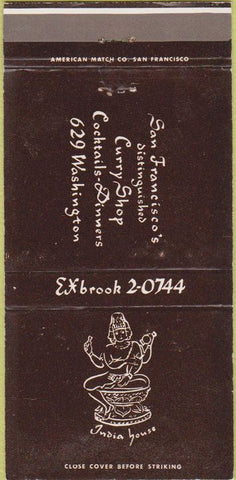 AMERICAN MATCH CO. SAN FRANCISCO
San Francisco's
distinguished
Curry Shop
Cocktails-Dinners
629 Washington
EXbrook 2-0744
India house
CLOSE COVER BEFORE STRIKING